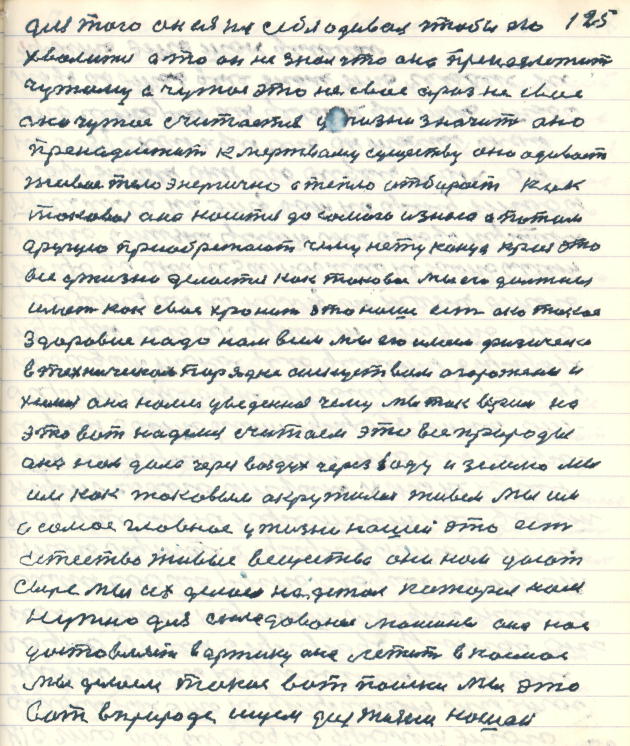 125
для того он ея на себя одивая чтобы его
хвалили а то он не зная что она пренадлежит
чужому а чужое это не свое а раз не свое
оно чужое считается у жизни значит оно
пренадлежит к мертвому существу оно одивает
живое тело энергично а тепло отбирает как
таковая она носится до самого износа а потом
другую приобретают чему нету конца края это
все у жизни делается как таковое мы его должны
имет как свое хранит это наше ест оно такое
здоровие надо нам всем мы его имеем физическо
в техническом порядке искуством огорожены и
химия она нами уведенная чему мы так верим на
это вот надемся считаем это все природы
она нам дала через воздух через воду и землю мы
им как таковым окружилися живем мы им
а самое главное у жизни нашей это ест
естество живые вещества они нам дают
сыре мы их делаем на детал которая нам
нужно для следования машины она нас
доставляет в арктику она летит в космос
мы делаем такие вот поиски мы это
вот в природе ищем для жизни нашей